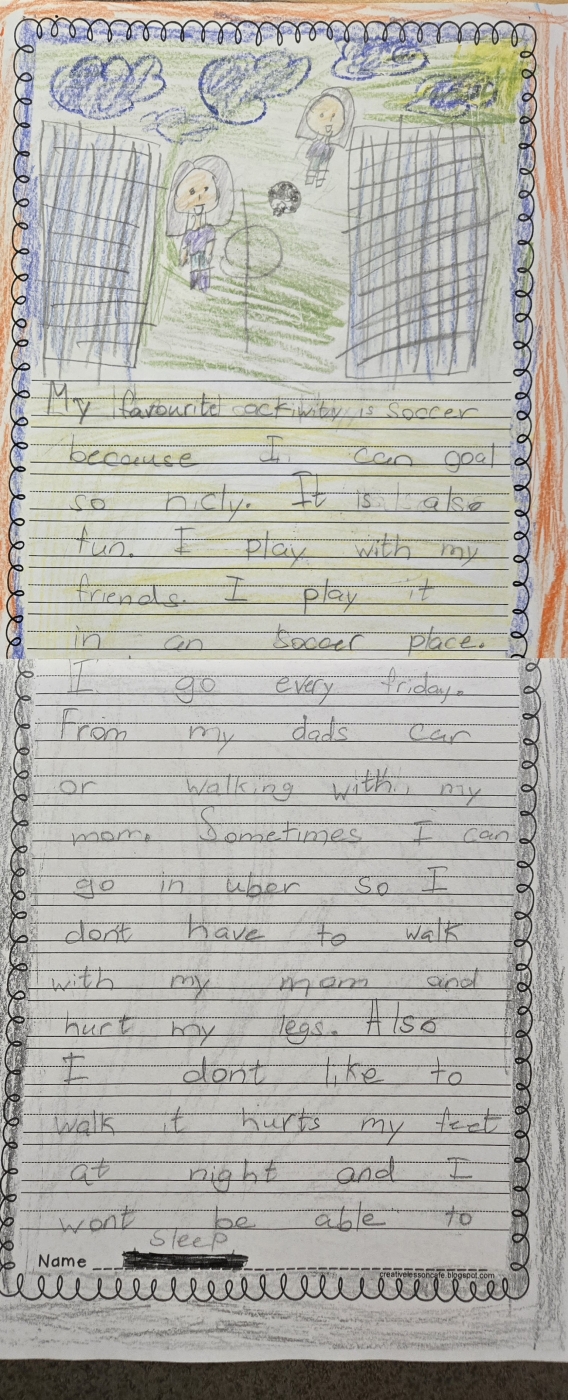 My favourite activity is Soccer
because I can goal
so nicly. It is also
fun. I play with my
friends. I play it
in an Soccer place.
I go every friday.
From my dads car
or walking with my
mom. Sometimes I can
go in uber so I
dont have to walk
with my mom and
hurt my legs. Also
I dont like to
walk it hurts my feet
at night and I
wont be able to
Sleep
Name
creativelessoncafe.blogspot.com